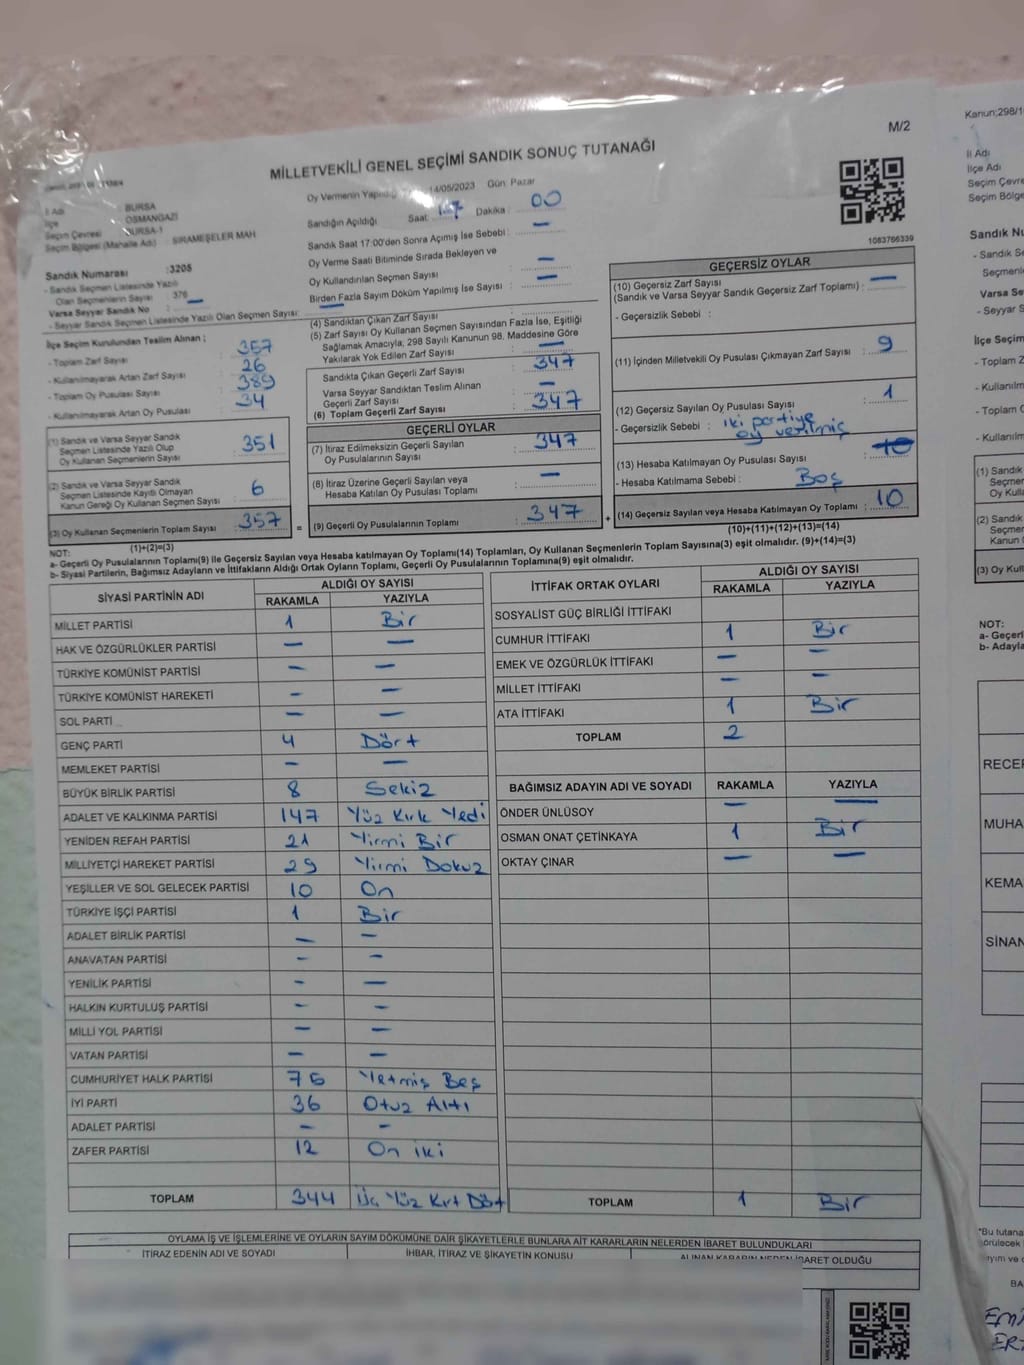 M/2
MİLLETVEKİLİ GENEL SEÇİMİ SANDIK SONUÇ TUTANAĞI
İl Adı BURSA
İlçe OSMANGAZİ
Seçim Çevresi BURSA-1
Seçim Bölgesi (Mahalle Adı) SIRAMEŞELER MAH
Sandık Numarası : 3205
- Sandık Seçmen Listesinde Yazılı
Olan Seçmenlerin Sayısı : 376
Varsa Seyyar Sandık No : —
- Seyyar Sandık Seçmen Listesinde Yazılı Olan Seçmen Sayısı: —
Oy Vermenin Yapıldığı 14/05/2023 Gün: Pazar
Sandığın Açıldığı Saat: 17 Dakika : 00
Sandık Saat 17:00'den Sonra Açımış İse Sebebi : —
Oy Verme Saati Bitiminde Sırada Bekleyen ve
Oy Kullandırılan Seçmen Sayısı : —
Birden Fazla Sayım Döküm Yapılmış İse Sayısı : —
1083766339
İlçe Seçim Kurulundan Teslim Alınan ;
- Toplam Zarf Sayısı : 357
- Kullanılmayarak Artan Zarf Sayısı : 26
- Toplam Oy Pusulası Sayısı : 389
- Kullanılmayarak Artan Oy Pusulası : 34
(1) Sandık ve Varsa Seyyar Sandık
Seçmen Listesinde Yazılı Olup
Oy Kullanan Seçmenlerin Sayısı : 351
(2) Sandık ve Varsa Seyyar Sandık
Seçmen Listesinde Kayıtlı Olmayan
Kanun Gereği Oy Kullanan Seçmen Sayısı : 6
(3) Oy Kullanan Seçmenlerin Toplam Sayısı : 357
(1)+(2)=(3)
(4) Sandıktan Çıkan Zarf Sayısı :
(5) Zarf Sayısı Oy Kullanan Seçmen Sayısından Fazla İse, Eşitliği
Sağlamak Amacıyla, 298 Sayılı Kanunun 98. Maddesine Göre
Yakılarak Yok Edilen Zarf Sayısı : —
Sandıkta Çıkan Geçerli Zarf Sayısı : 347
Varsa Seyyar Sandıktan Teslim Alınan
Geçerli Zarf Sayısı : —
(6) Toplam Geçerli Zarf Sayısı : 347
GEÇERLİ OYLAR
(7) İtiraz Edilmeksizin Geçerli Sayılan
Oy Pusulalarının Sayısı : 347
(8) İtiraz Üzerine Geçerli Sayılan veya
Hesaba Katılan Oy Pusulası Toplamı : —
= (9) Geçerli Oy Pusulalarının Toplamı : 347 +
GEÇERSİZ OYLAR
(10) Geçersiz Zarf Sayısı
(Sandık ve Varsa Seyyar Sandık Geçersiz Zarf Toplamı) : —
- Geçersizlik Sebebi :
(11) İçinden Milletvekili Oy Pusulası Çıkmayan Zarf Sayısı : 9
(12) Geçersiz Sayılan Oy Pusulası Sayısı : 1
- Geçersizlik Sebebi : iki partiye
oy verilmiş
(13) Hesaba Katılmayan Oy Pusulası Sayısı : 10
- Hesaba Katılmama Sebebi : Boş
(14) Geçersiz Sayılan veya Hesaba Katılmayan Oy Toplamı : 10
(10)+(11)+(12)+(13)=(14)
NOT:
a- Geçerli Oy Pusulalarının Toplamı(9) ile Geçersiz Sayılan veya Hesaba katılmayan Oy Toplamı(14) Toplamları, Oy Kullanan Seçmenlerin Toplam Sayısına(3) eşit olmalıdır. (9)+(14)=(3)
b- Siyasi Partilerin, Bağımsız Adayların ve İttifakların Aldığı Ortak Oyların Toplamı, Geçerli Oy Pusulalarının Toplamına(9) eşit olmalıdır.
SİYASİ PARTİNİN ADI ALDIĞI OY SAYISI
RAKAMLA YAZIYLA
MİLLET PARTİSİ 1 Bir
HAK VE ÖZGÜRLÜKLER PARTİSİ — —
TÜRKİYE KOMÜNİST PARTİSİ — —
TÜRKİYE KOMÜNİST HAREKETİ — —
SOL PARTİ — —
GENÇ PARTİ 4 Dört
MEMLEKET PARTİSİ — —
BÜYÜK BİRLİK PARTİSİ 8 Sekiz
ADALET VE KALKINMA PARTİSİ 147 Yüz Kırk Yedi
YENİDEN REFAH PARTİSİ 21 Yirmi Bir
MİLLİYETÇİ HAREKET PARTİSİ 29 Yirmi Dokuz
YEŞİLLER VE SOL GELECEK PARTİSİ 10 On
TÜRKİYE İŞÇİ PARTİSİ 1 Bir
ADALET BİRLİK PARTİSİ — —
ANAVATAN PARTİSİ — —
YENİLİK PARTİSİ — —
HALKIN KURTULUŞ PARTİSİ — —
MİLLİ YOL PARTİSİ — —
VATAN PARTİSİ — —
CUMHURİYET HALK PARTİSİ 75 Yetmiş Beş
İYİ PARTİ 36 Otuz Altı
ADALET PARTİSİ — —
ZAFER PARTİSİ 12 On iki
TOPLAM 344 Üç Yüz Kırt Dört
İTTİFAK ORTAK OYLARI ALDIĞI OY SAYISI
RAKAMLA YAZIYLA
SOSYALİST GÜÇ BİRLİĞİ İTTİFAKI
CUMHUR İTTİFAKI 1 Bir
EMEK VE ÖZGÜRLÜK İTTİFAKI — —
MİLLET İTTİFAKI — —
ATA İTTİFAKI 1 Bir
TOPLAM 2
BAĞIMSIZ ADAYIN ADI VE SOYADI RAKAMLA YAZIYLA
ÖNDER ÜNLÜSOY — —
OSMAN ONAT ÇETİNKAYA 1 Bir
OKTAY ÇINAR — —
TOPLAM 1 Bir
OYLAMA İŞ VE İŞLEMLERİNE VE OYLARIN SAYIM DÖKÜMÜNE DAİR ŞİKAYETLERLE BUNLARA AİT KARARLARIN NELERDEN İBARET BULUNDUKLARI
İTİRAZ EDENİN ADI VE SOYADI İHBAR, İTİRAZ VE ŞİKAYETİN KONUSU ALINAN KARARIN NEDEN İBARET OLDUĞU
Kanun;298/1
İl Adı
İlçe Adı
Seçim Çevre
Seçim Bölge
Sandık Nu
- Sandık Se
Seçmenl
Varsa Se
- Seyyar S
İlçe Seçim
- Toplam Z
- Kullanılm
- Toplam O
- Kullanılm
(1) Sandık
Seçmen
Oy Kull
(2) Sandık
Seçmen
Kanun G
(3) Oy Kull
NOT:
a- Geçerl
b- Adayla
RECEP
MUHA
KEMA
SİNAN
*Bu tutana
BA